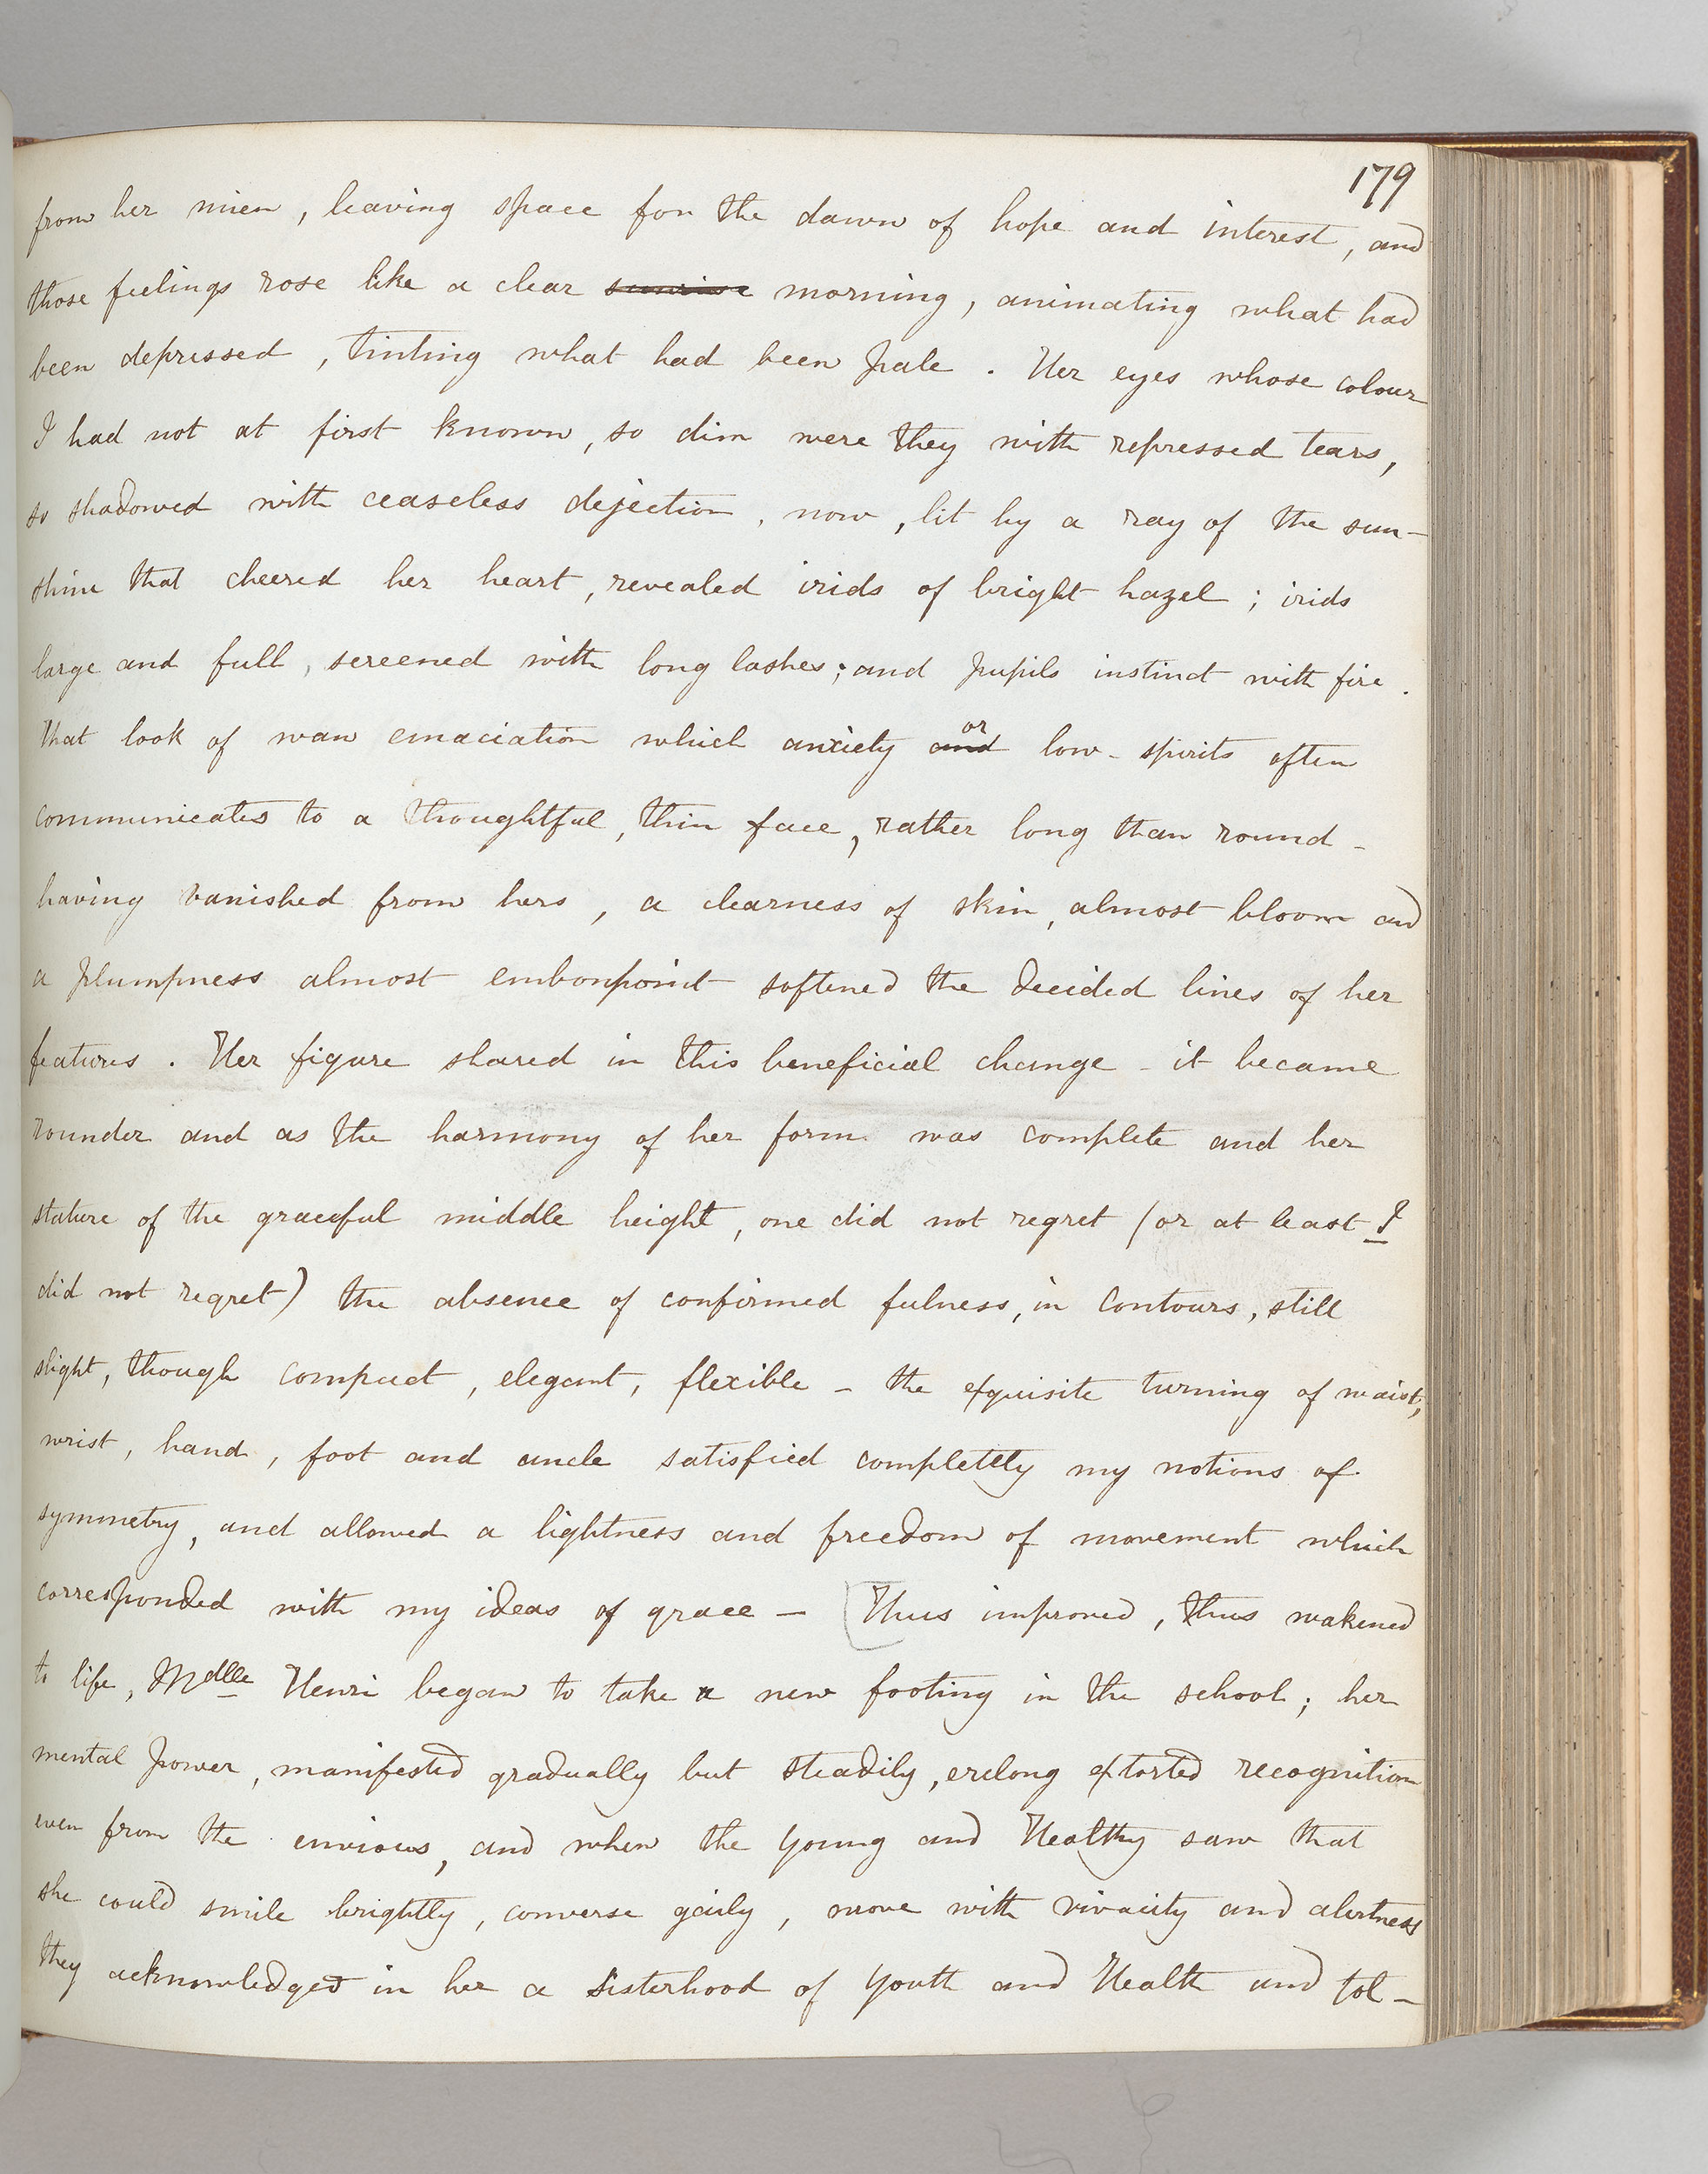 179
from her mien, leaving space for the dawn of hope and interest, and
those feelings rose like a clear sunrise morning, animating what had
been depressed, tinting what had been pale. Her eyes whose colour
I had not at first known, so dim were they with repressed tears,
so shadowed with ceaseless dejection, now, lit by a ray of the sun-
shine that cheered her heart, revealed irids of bright hazel; irids
large and full, screened with long lashes; and pupils instinct with fire.
That look of wan emaciation which anxiety and or low-spirits often
communicates to a thoughtful, thin face, rather long than round -
having vanished from hers, a clearness of skin, almost bloom and
a plumpness almost embonpoint softened the decided lines of her
features. Her figure shared in this beneficial change - it became
rounder and as the harmony of her form was complete and her
stature of the graceful middle height, one did not regret (or at least I
did not regret) the absence of confirmed fulness, in contours, still
slight, though compact, elegant, flexible - the exquisite turning of waist,
wrist, hand, foot and ancle satisfied completely my notions of
symmetry, and allowed a lightness and freedom of movement which
corresponded with my ideas of grace - [Thus improved, thus wakened
to life, Mdlle Henri began to take a new footing in the school; her
mental power, manifested gradually but steadily, erelong extorted recognition
even from the envious, and when the young and Healthy saw that
she could smile brightly, converse gaily, move with vivacity and alertness
they acknowledged in her a sisterhood of Youth and Health and tol-